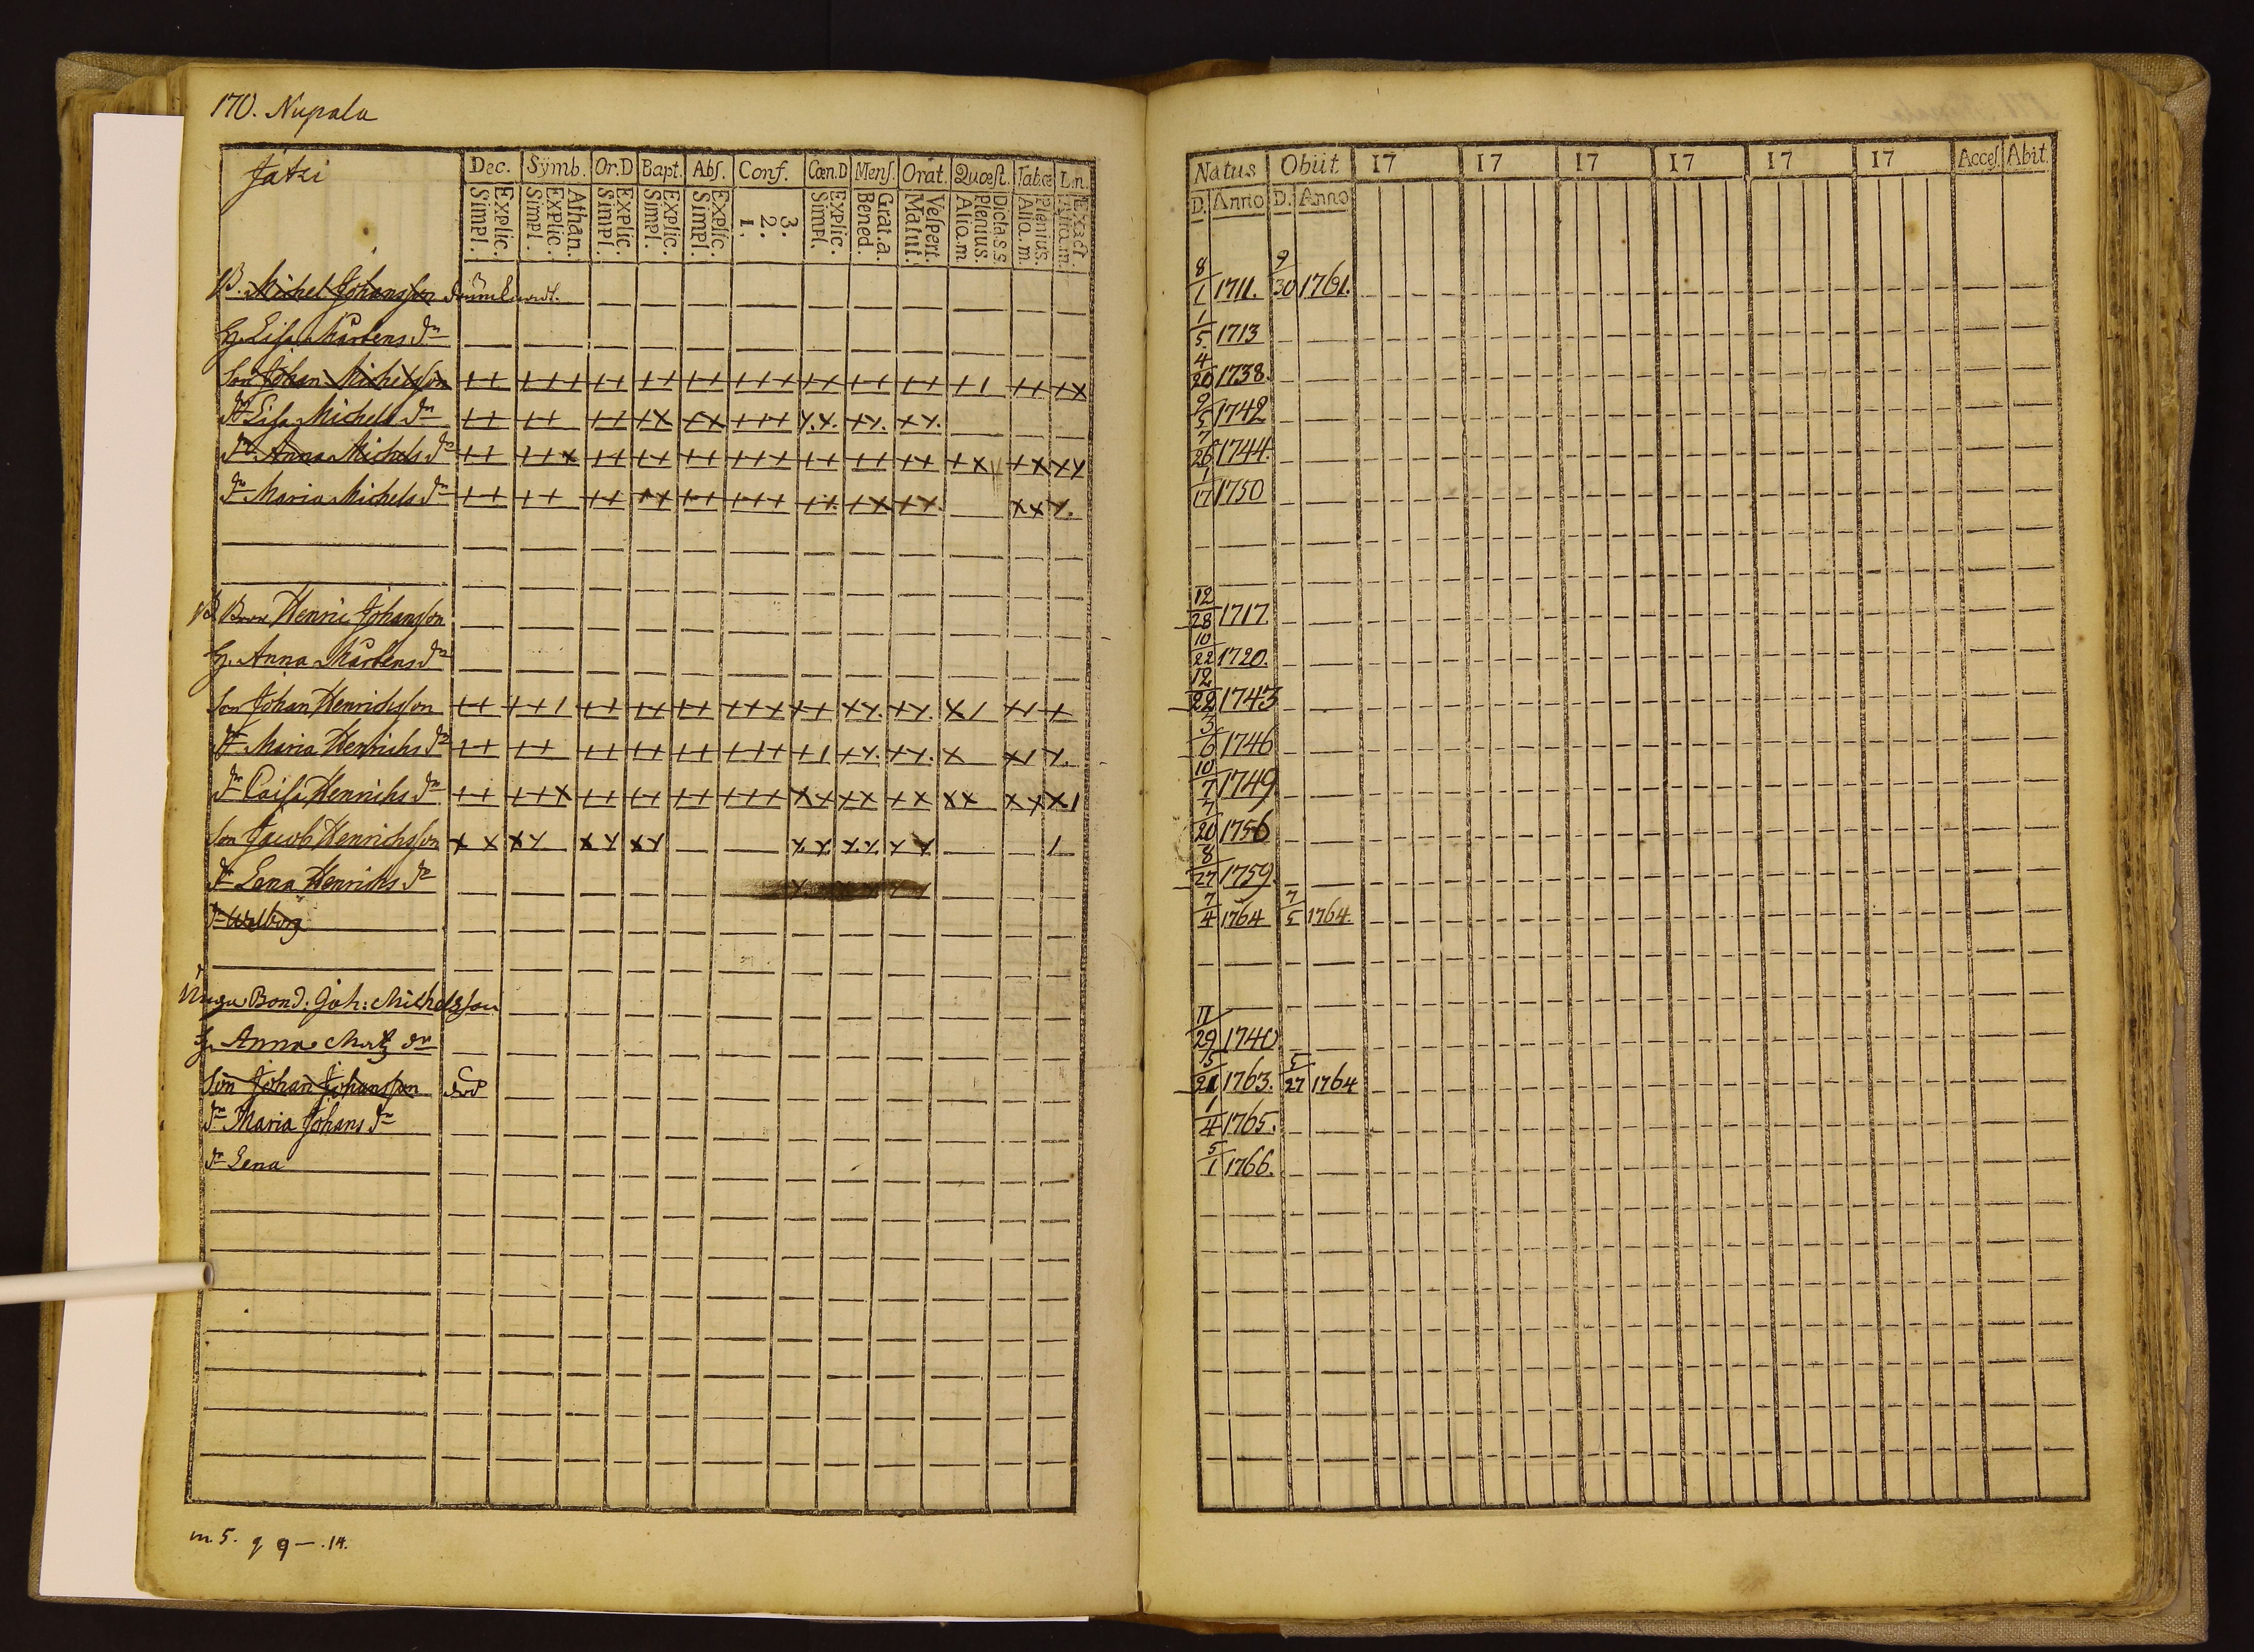 170. Nupala
Jatsi
Dec. Sÿmb. Or.D Bapt. Abs. Conf. Cœn.D Mens. Orat. Quœst. Tabœ L.n.
Explic. Simpl. Athan. Explic. Simpl. Explic. Simpl. Explic. Simpl. Explic. Simpl. 3. 2. 1. Explic. Simpl. Grat.a. Bened. Vespert. Matut. Dicta.s.s. Plenius. Aliq.m. Plenius. Aliq.m. Exact. Aliq.m.
B. Michel Johansson
H. Lisa Mårtens dr
Son Johan Michelsson
dr Lisa Michels dr
dr Anna Michels dr
dr Maria Michels dr
Bror Henric Johansson
H. Anna Mårtens dr
Son Johan Henrichsson
dr Maria Henrichs dr
dr Caisa Henrichs dr
Son Jacob Henrichsson
dr Lena Henrichs dr
dr Walborg
Unga Bond: Joh: Michelsson
H. Anna Matz dr
Son Johan Johansson död
dr Maria Johans dr
dr Lena
m. 5. q 9 — .14.
Natus Obiit 17 17 17 17 17 17 Acces. Abit.
D. Anno D. Anno
8/1 1711. 9/30 1761.
1/5 1713
4/20 1738.
9/5 1742
7/26 1744.
1/17 1750
12/28 1717.
10/22 1720.
12/22 1743
3/6 1746
10/7 1749
7/20 1756
8/27 1759.
7/4 1764 7/5 1764.
11/29 1740
5/21 1763. 5/27 1764
1/4 1765.
5/1 1766.